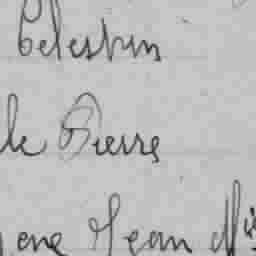 Celestin
le Pierre
ene Jean M